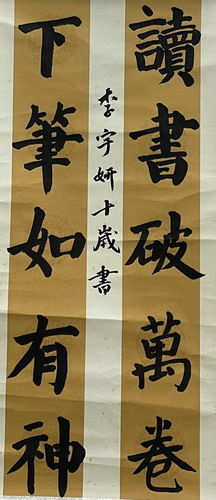 讀書破萬卷
下筆如有神
李宇妍十歲書